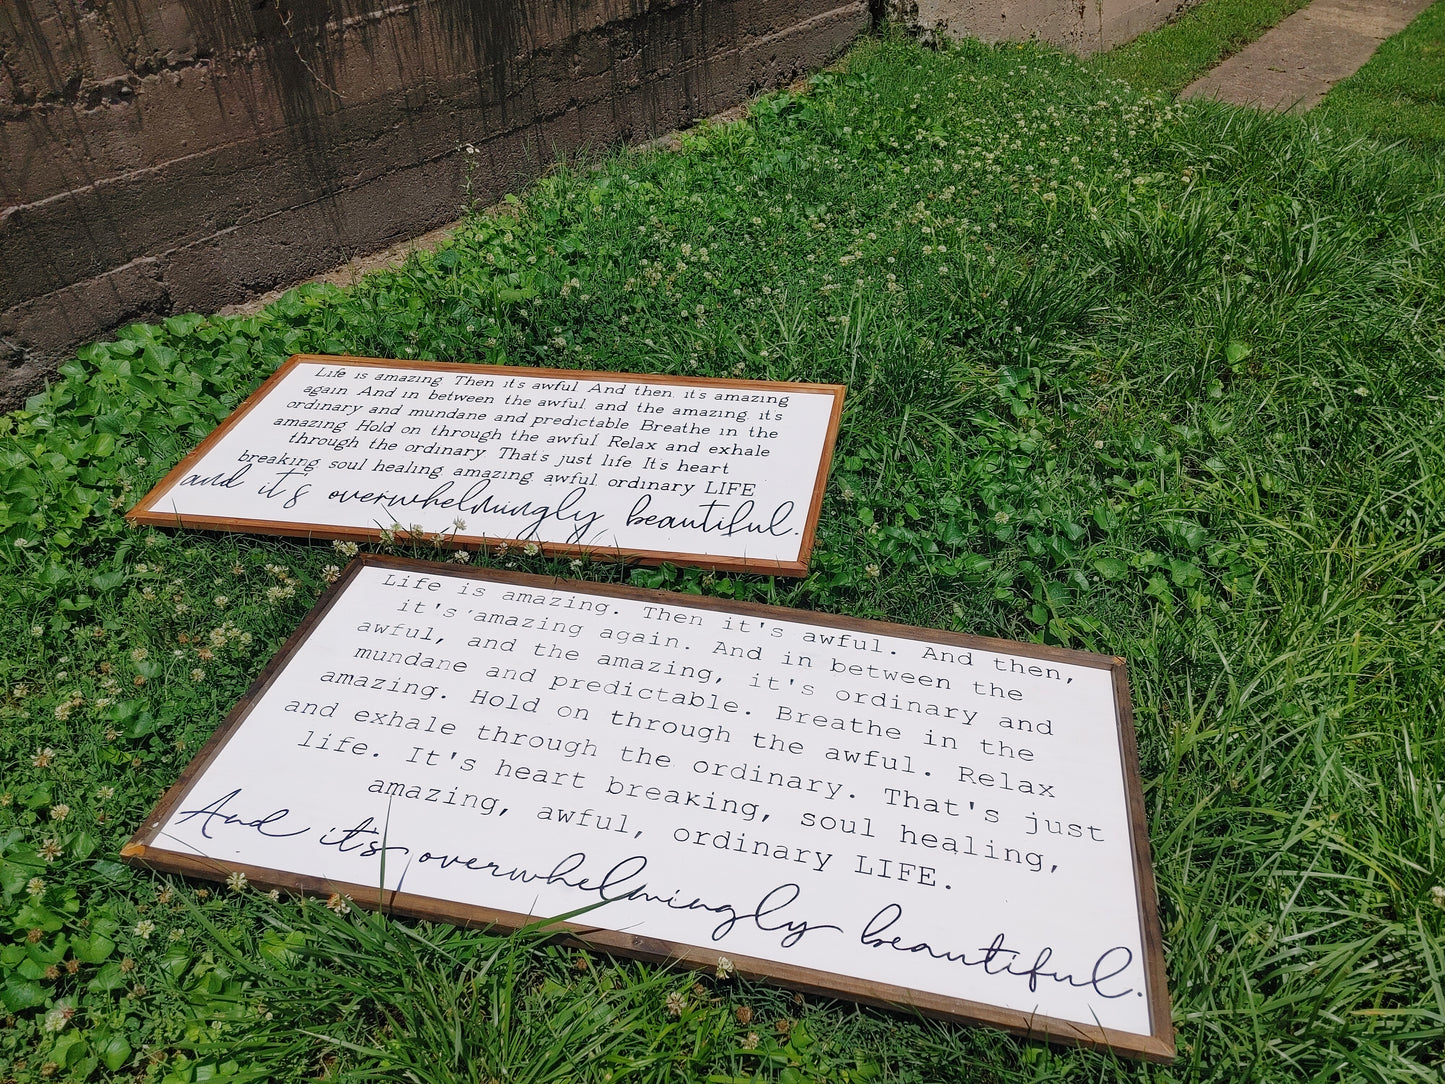 Life is amazing Then it's awful And then it's amazing
again And in between the awful and the amazing it's
ordinary and mundane and predictable Breathe in the
amazing Hold on through the awful Relax and exhale
through the ordinary That's just life It's heart
breaking soul healing amazing awful ordinary LIFE
and it's overwhelmingly beautiful.
Life is amazing. Then it's awful. And then,
it's amazing again. And in between the
awful, and the amazing, it's ordinary and
mundane and predictable. Breathe in the
amazing. Hold on through the awful. Relax
and exhale through the ordinary. That's just
life. It's heart breaking, soul healing,
amazing, awful, ordinary LIFE.
And it's overwhelmingly beautiful.